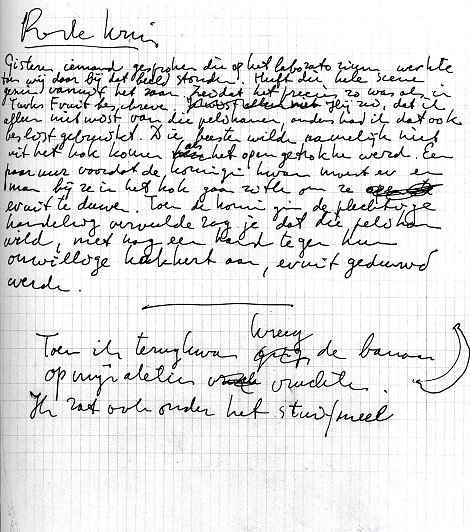 Rode kruis
Gisteren iemand gesproken die op het laboratorium werkte
toen wij daar bij dat beeld stonden. Heeft die hele scene
gezien vanuit het raam, zei dat het precies zo was als in
Turks Fruit beschreven. Jij zei, dat ik
alleen niet wist van die pelikanen, anders had ik dat ook
beslist gebruikt. Die beesten wilden namelijk niet
uit het hok komen als het opengetrokken werd. Een
paar uur voordat de koningin kwam moest er een
man bij ze in het hok gaan zitten om ze
eruit te duwen. Toen de koningin de plechtige
handeling vervulde zag je dat die pelikaan
wild, met nog een hand tegen hun
onwillige kont aan, eruit geduwd
werden.
Toen ik terugkwam kreeg de banaan
op mijn atelier vruchten.
Ik zat ook onder het stuifmeel